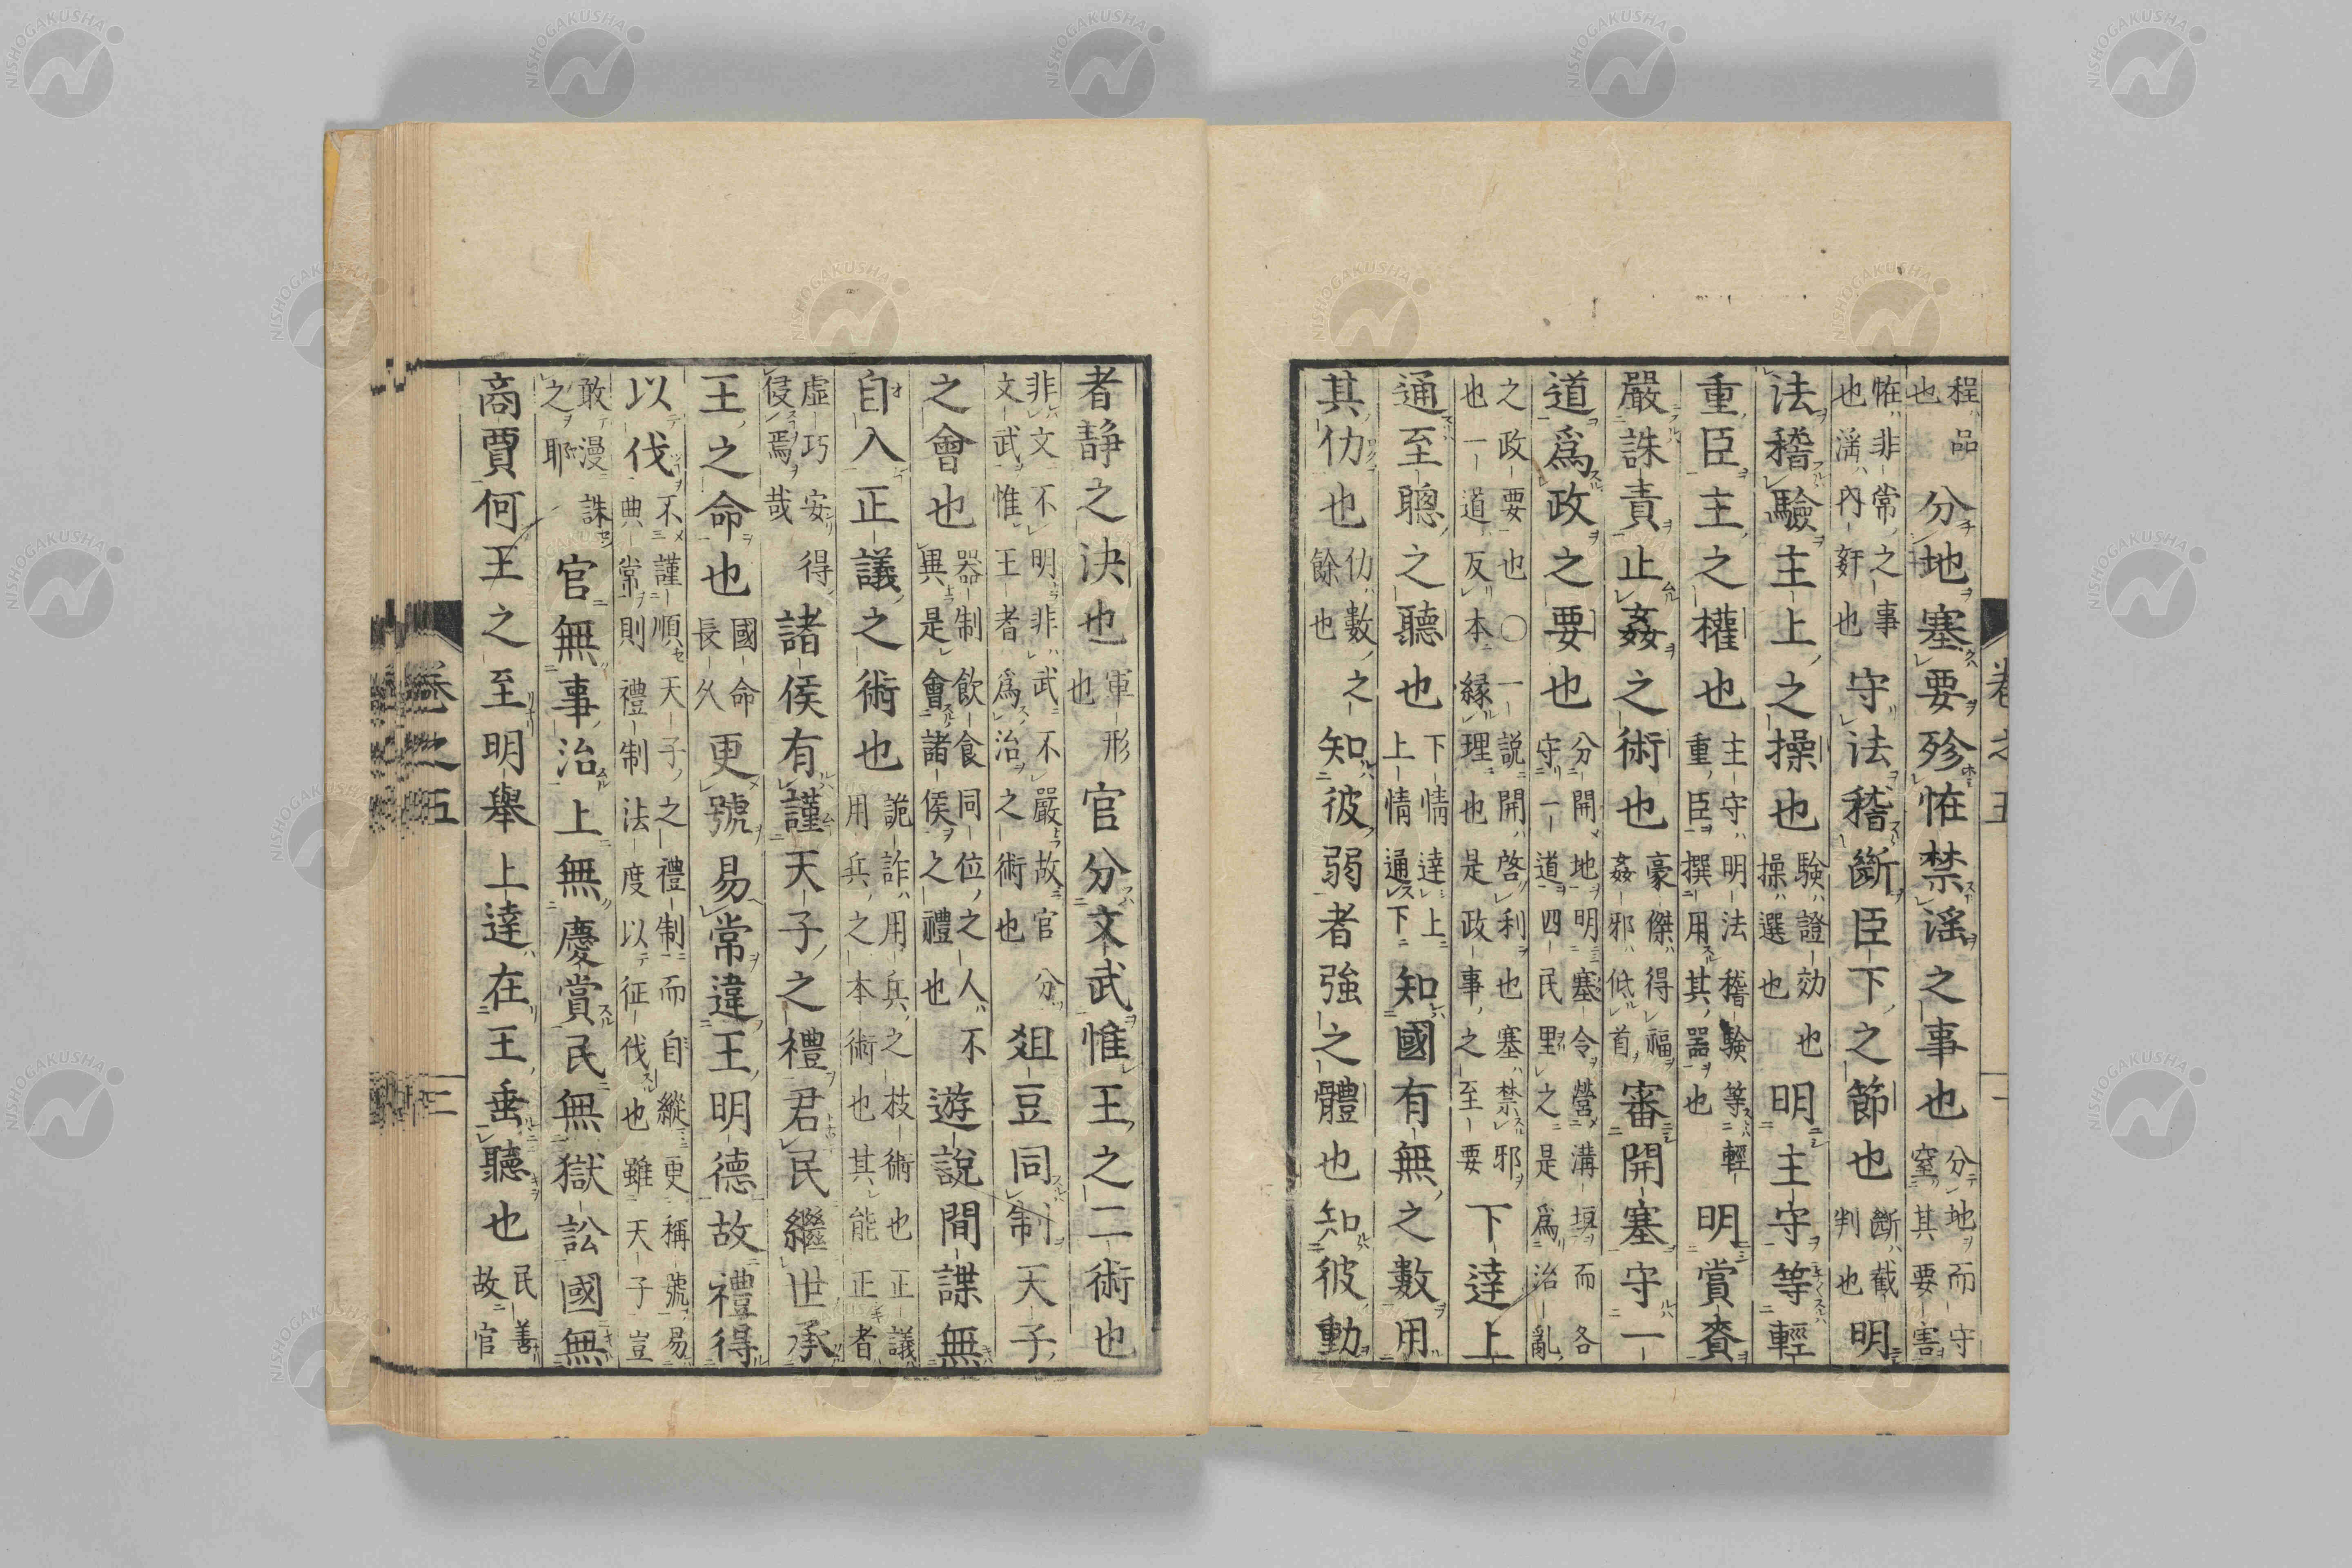 卷之五
程品也分地塞要殄恠禁滛之事也分地而守窒其要害
恠非常之事也滛内姧也守法稽斷臣下之節也斷截判也明
法稽驗主上之操也驗證効也操選也明主守等輕
重臣主之權也主守明法稽験等輕重臣撰用其器也明賞賚
嚴誅責止姦之術也豪傑得福姦邪低首審開塞守一
道爲政之要也分開地明塞令營溝塤而各守一道四民里之是爲治亂
之政要也〇一說開啓利也塞禁邪也一道反本縁理也是政事之至要下達上
通至聰之聽也下情達上上情通下知國有無之數用
其仂也仂數之餘也知彼弱者強之體也知彼動
者静之決也軍形也官分文武惟王之二術也
非文不明非武不嚴故官分文武惟王者爲治之術也爼豆同制天子
之會也器制飲食同位之人不異是會諸侯之禮也遊說間諜無
自入正議之術也詭詐用兵之枝術也正議用兵之本術也其能正者
虛巧安得侵焉哉諸侯有謹天子之禮君民繼世承
王之命也國命長久更號易常違王明德故禮得
以伐不謹順天子之禮制而自縱更稱號易典常則禮制法度以征伐也雖天子豈
敢漫誅之耶官無事治上無慶賞民無獄訟國無
商賈何王之至明舉上達在王垂聽也民善故官
卷之五 三
NISHOGAKUSHA